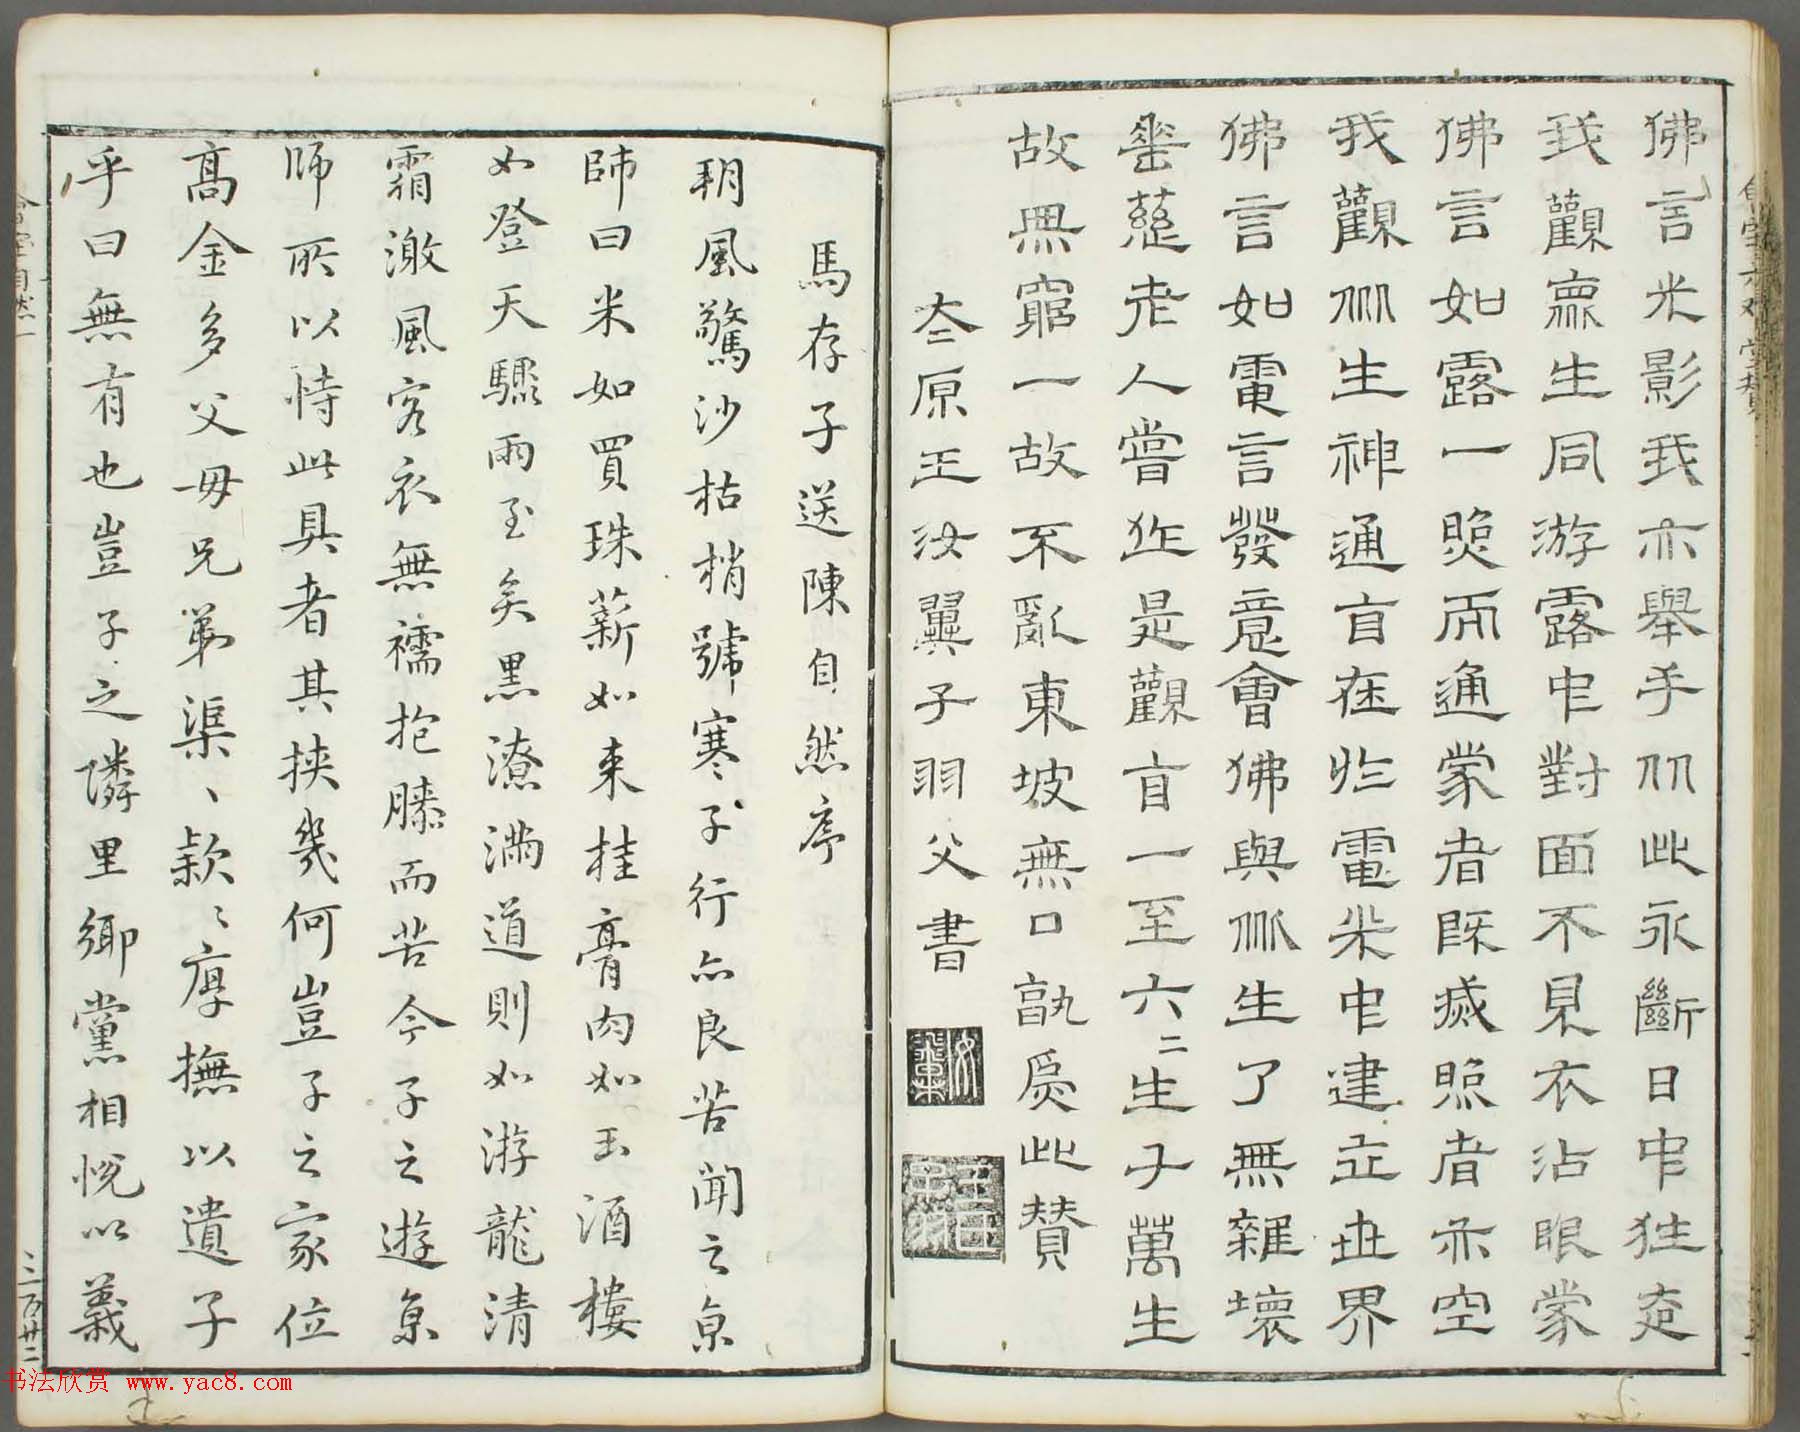 佛言光影我亦舉手比此永斷日中狂走
我觀衆生同游露中對面不見衣沾眼蒙
佛言如露一照而通蒙者既滅照者亦空
我觀衆生神通自在於電光中建立世界
佛言如電言發意會佛與衆生了無雜壞
垂慈老人嘗作是觀自一至六二生子萬生
故無窮一故不亂東坡無口孰爲此贊
太原王汝翼子羽父書
馬存子送陳自然序
朔風驚沙枯梢號寒子行亦良苦聞之京
師曰米如買珠薪如束桂膏肉如玉酒樓
如登天驟雨至矣黑潦滿道則如游龍清
霜激風客衣無襦抱膝而苦今子之遊京
師所以恃此具者其挾幾何豈子之家位
高金多父母兄弟渠〻款〻厚撫以遺子
乎曰無有也豈子之隣里鄉黨相悅以義
三百廿二
书法欣赏 www.yac8.com